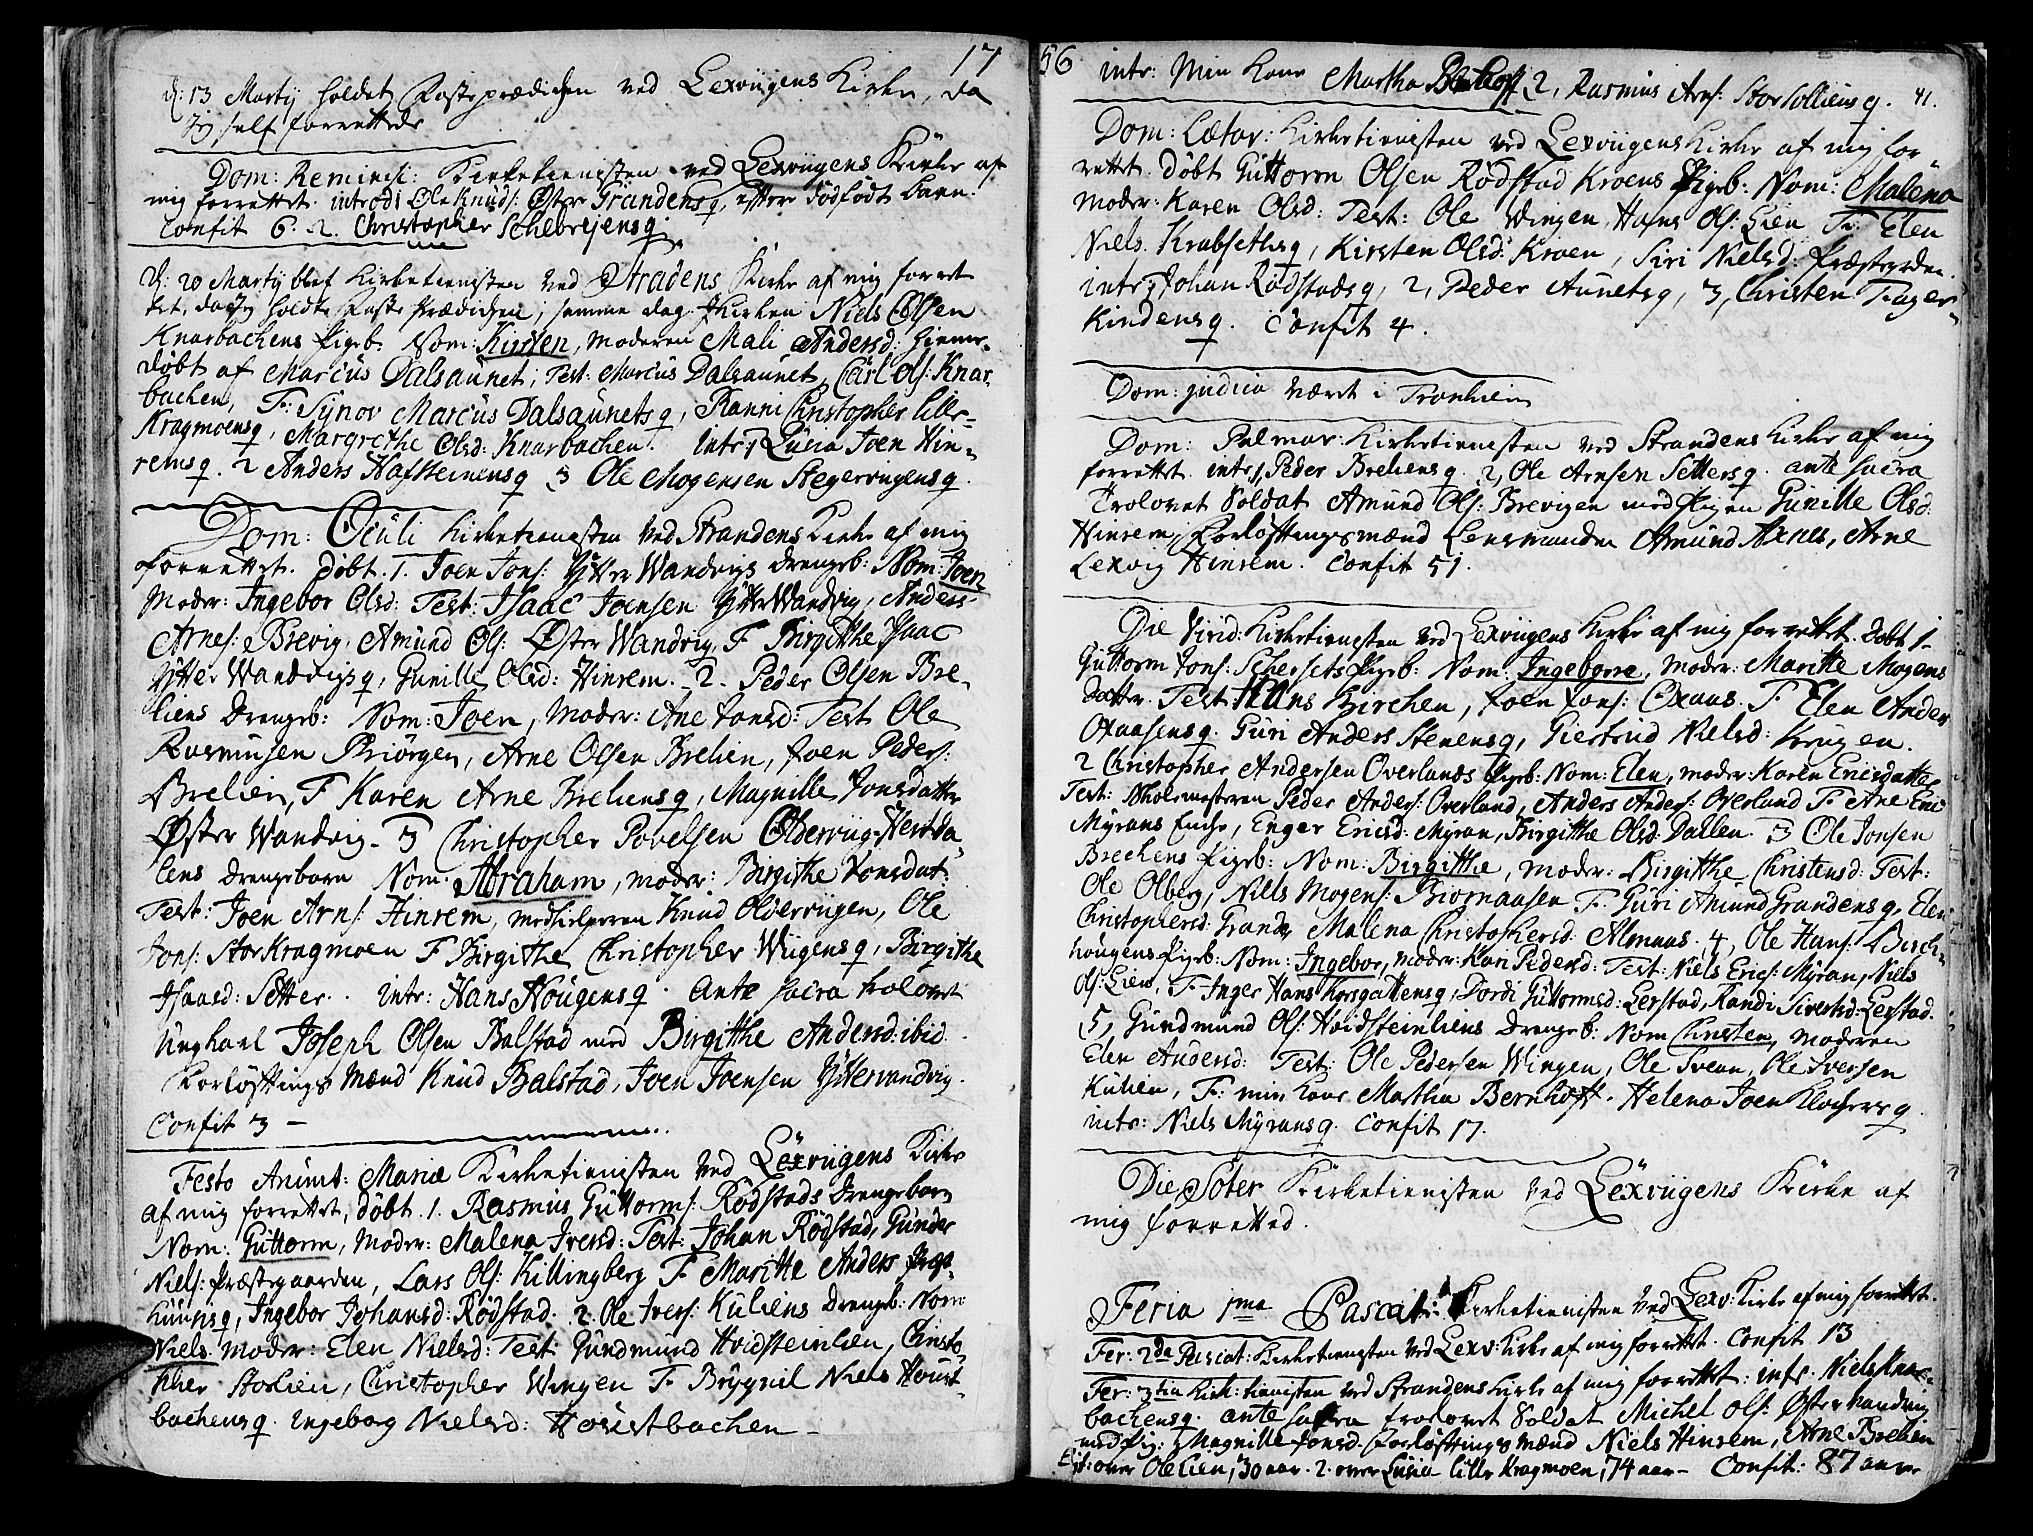 17
d: 13 Martij holdet Fasteprædichen ved Lexvigens Kirke, da
Jeg self forrettede
Dom: Reminisc: Kirketienisten ved Lexvigens Kirke af
mig forrettet. introd: Ole Knuds: Øster Grandens q, efter dødfødt barn.
Confit 6. 2. Christopher Schevrejens q
d: 20 Martij blef Kirketienisten ved Stradens Kirke af mig forret
tet, da jeg holdte Faste Prædichen; samme dag Kirken Niels Olsen
Knarbachens Pigeb: Nom: Kirsten, moderen Mali Andersd: Hjemme-
døbt af Marcus Dalsaunet; Test: Marcus Dalsaunet, Carl Ols: Knar
bachen, F: Synov Marcus Dalsaunets q, Ranni Christopher Lille-
Kragmoens q, Margrethe Olsd: Knarbachen. Intr: 1 Lucia Joen Hin-
rems q. 2 Anders Hafsteinens q 3 Ole Mogensen Stegervigens q.
Dom: Oculi Kirketienesten ved Strandens Kirke af mig
forrettet. døbt. 1. Joen Jons: Ytter Wandvigs drengeb: Nom: Joen
Moder: Ingebor Olsd: Test: Isaac Joensen Ytter Wandvig, Anders
Arnes: Brevig, Amund Ols: Øster Wandvig, F Birgithe Isaac
Ytter Wandvigs q, Gunille Olsd: Hinrem. 2. Peder Olsen Bre-
liens Drengeb: Nom: Joen, Moder: Ane Jonsd: Test Ole
Rasmusen Priørgen, Arne Olsen Brelien, Joen Peders:
Brelien, F Karen Arne Breliens q, Magnille Jonsdatter
Øster Wandvig. 3 Christopher Povelsen Oldervig-Herda-
lens Drengebarn Nom: Abraham, moder: Birgithe Jonsdat:
Test: Joen Arns: Hinrem, medhielperen Knud Oldervigen, Ole
Jons: Stor Kragmoen F Birgithe Christopher Wiigens q, Birgithe
Isaasd: Setter. intr: Hans Hougens q. Ante sacra trolovet
Ungkarl Joseph Olsen Balstad med Birgithe Andersd: ibid.
Forløftings Mænd Knud Balstad, Joen Joensen Yttervandvig.
Confit 3 -
Festo Anunt: Mariæ Kirketienisten ved Lexvigens Kirke
af mig forrettet, døbt. 1. Rasmus Guttorms: Rødstads Drengebarn
Nom: Guttorm, Moder: Malena Iversd: Test: Johan Rødstad, Gunder
Niels: Præstegaarden, Lars Ols: Killingberg F Maritte Anders
q, Ingebor Johansd: Rødstad. 2. Ole Ivers: Kuliens Drengeb: Nom
Niels. moder: Elen Nielsd: Test: Gundmund Hvidsteinlien, Christo-
pher Storlien, Christopher Wingen F Brygnil Niels Houst-
bachens q. Ingeborg Nielsd: Houstbachen -
56
intr: Min Kone Martha Bernhoft 2, Rasmus Arns: Storsolliens q. 41.
Dom: Lætar: Kirketienisten ved Lexvigens Kirke af mig for-
rettet. døbt Guttorm Olsen Rødstad Kroens Pigeb: Nom: Malena
Moder: Karen Olsd: Test: Ole Wingen, Hans Ols: Lien F: Elen
Niels Krabseths q, Kirsten Olsd: Kroen, Siri Nielsd: Præstgrden.
intr: 1 Johan Rødstads q, 2, Peder Aunets q, 3, Christen Fager-
Kindens q. Confit 4.
Dom: Judica været i Tronhiem
Dom: Palmar: Kirketienisten ved Strandens Kirke af mig
forrettet. intr: 1, Peder Breliens q. 2, Ole Arnsen Setters q. ante sacra
Trolovet Soldat Amund Ols: Brevigen med Pigen Gunille Olsd:
Hinrem, Forløftingsmænd Lensmanden Amund Axnes, Arne
Lexvig Hinrem. Confit 51.
Die Virid: Kirketienisten ved Lexvigens Kirke af mig forrettet. døbt 1
Guttorm Jons: Schersets Pigeb: Nom: Ingeborre, moder: Maritte Mogens
datter. Test Hans Birchen, Joen Jons: Oxaas. F Elen Ander
Oxaasens q. Guri Anders Stenens q, Giertrud Nielsd: Haugen.
2 Christopher Andersen Overlands Pigeb: Nom: Elen, moder: Karen Ericsdatter
Test: Skolemesteren Peder Anders: Overland, Anders Anders: Overland F. Ane Eric
Myrans Enche, Enger Ericsd: Myran, Birgithe Olsd: Dallen. 3 Ole Jonsen
Brechens Pigeb: Nom: Birgitthe, moder: Birgitthe Christensd: Test:
Ole Olberg, Niels Mogens: Biørnaasen F. Guri Amund Grandens q, Elen
Christophersd: Grande Malena Christophersd: Almaas. 4, Ole Hans: Birch-
hougens Pigeb: Nom: Ingebor, moder: Kari Pedersd: Test: Niels Erics: Myran, Niels
Ols: Liens, F Inger Hans Korsgattens q, Dordi Guttormsd: Lerstad, Randi Sivertsd: Lerstad.
5, Gundmund Ols: Hvidsteinliens Drengeb: Nom Christen, moderen
Elen Andersd: Test: Ole Pedersen Wingen, Ole Sveun, Ole Iversen
Kulien, F: min Kone Martha Bernhoft. Helena Joen Klochers q.
intr: Niels Myrans q. Confit 17.
Die Soter Kirketienisten ved Lexvigens Kirke af
mig forretted.
Feria 1ma Pascat: Kirketienisten ved Lexv: Kirke af mig forrettet.
Fer: 2da Pascat: Kirketienisten ved Lexv: Kirke af mig forrettet. Confit 13
Fer: 3tia Kirk: tienisten ved Strandens Kirke af mig forrettet: intr: Niels Knar-
bachens q. ante sacra trolovet Soldat Michel Ols: Øster Vandvig
med Pig: Magnille Jonsd. Forløftings Mænd Niels Hinrem, Arne Brelien
over Ole Lien, 30 aar. 2. over Lusia Lille Kragmoen, 74 aar - Confit: 87